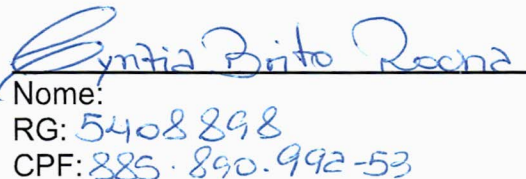 Cyntia Brito Rocha
Nome:
RG: 5408898
CPF: 885.890.992-53